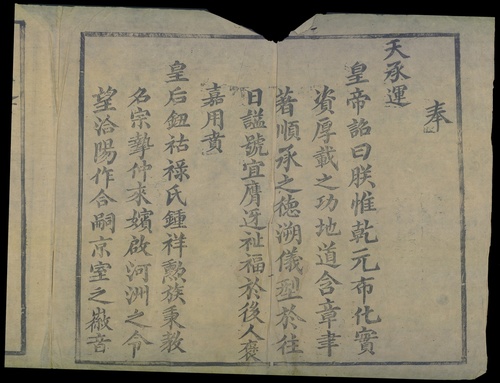 奉
天承運
皇帝詔曰朕惟乾元布化實
資厚載之功地道含章聿
著順承之徳溯儀型於往
日謚號宜膺迓祉福於後人褒
嘉用賁
皇后鈕祜祿氏鍾祥勲族秉教
名宗摯仲來嬪啟河洲之令
望洽陽作合嗣京室之徽音